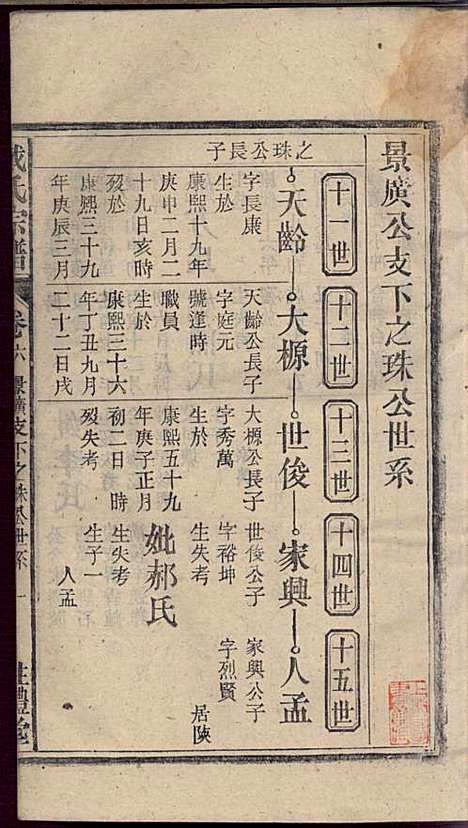 景廣公支下之珠公世系
十一世
十二世
十三世
十四世
十五世
之珠公長子
天齡
大榞
世俊
家興
人孟
字長康
生於
康熙十九年
庚申二月二
十九日亥時
歿於
康熙三十九
年庚辰三月
天齡公長子
字庭元
號逢時
職員
生於
康熙三十六
年丁丑九月
二十二日戌
大榞公長子
字秀萬
生於
康熙五十九
年庚子正月
初二日 時
歿失考
世俊公子
字裕坤
生失考
妣郝氏
生失考
生子一
人孟
家興公子
字烈賢
居陝
氏宗譜
卷六
景廣支下之珠公世系
一